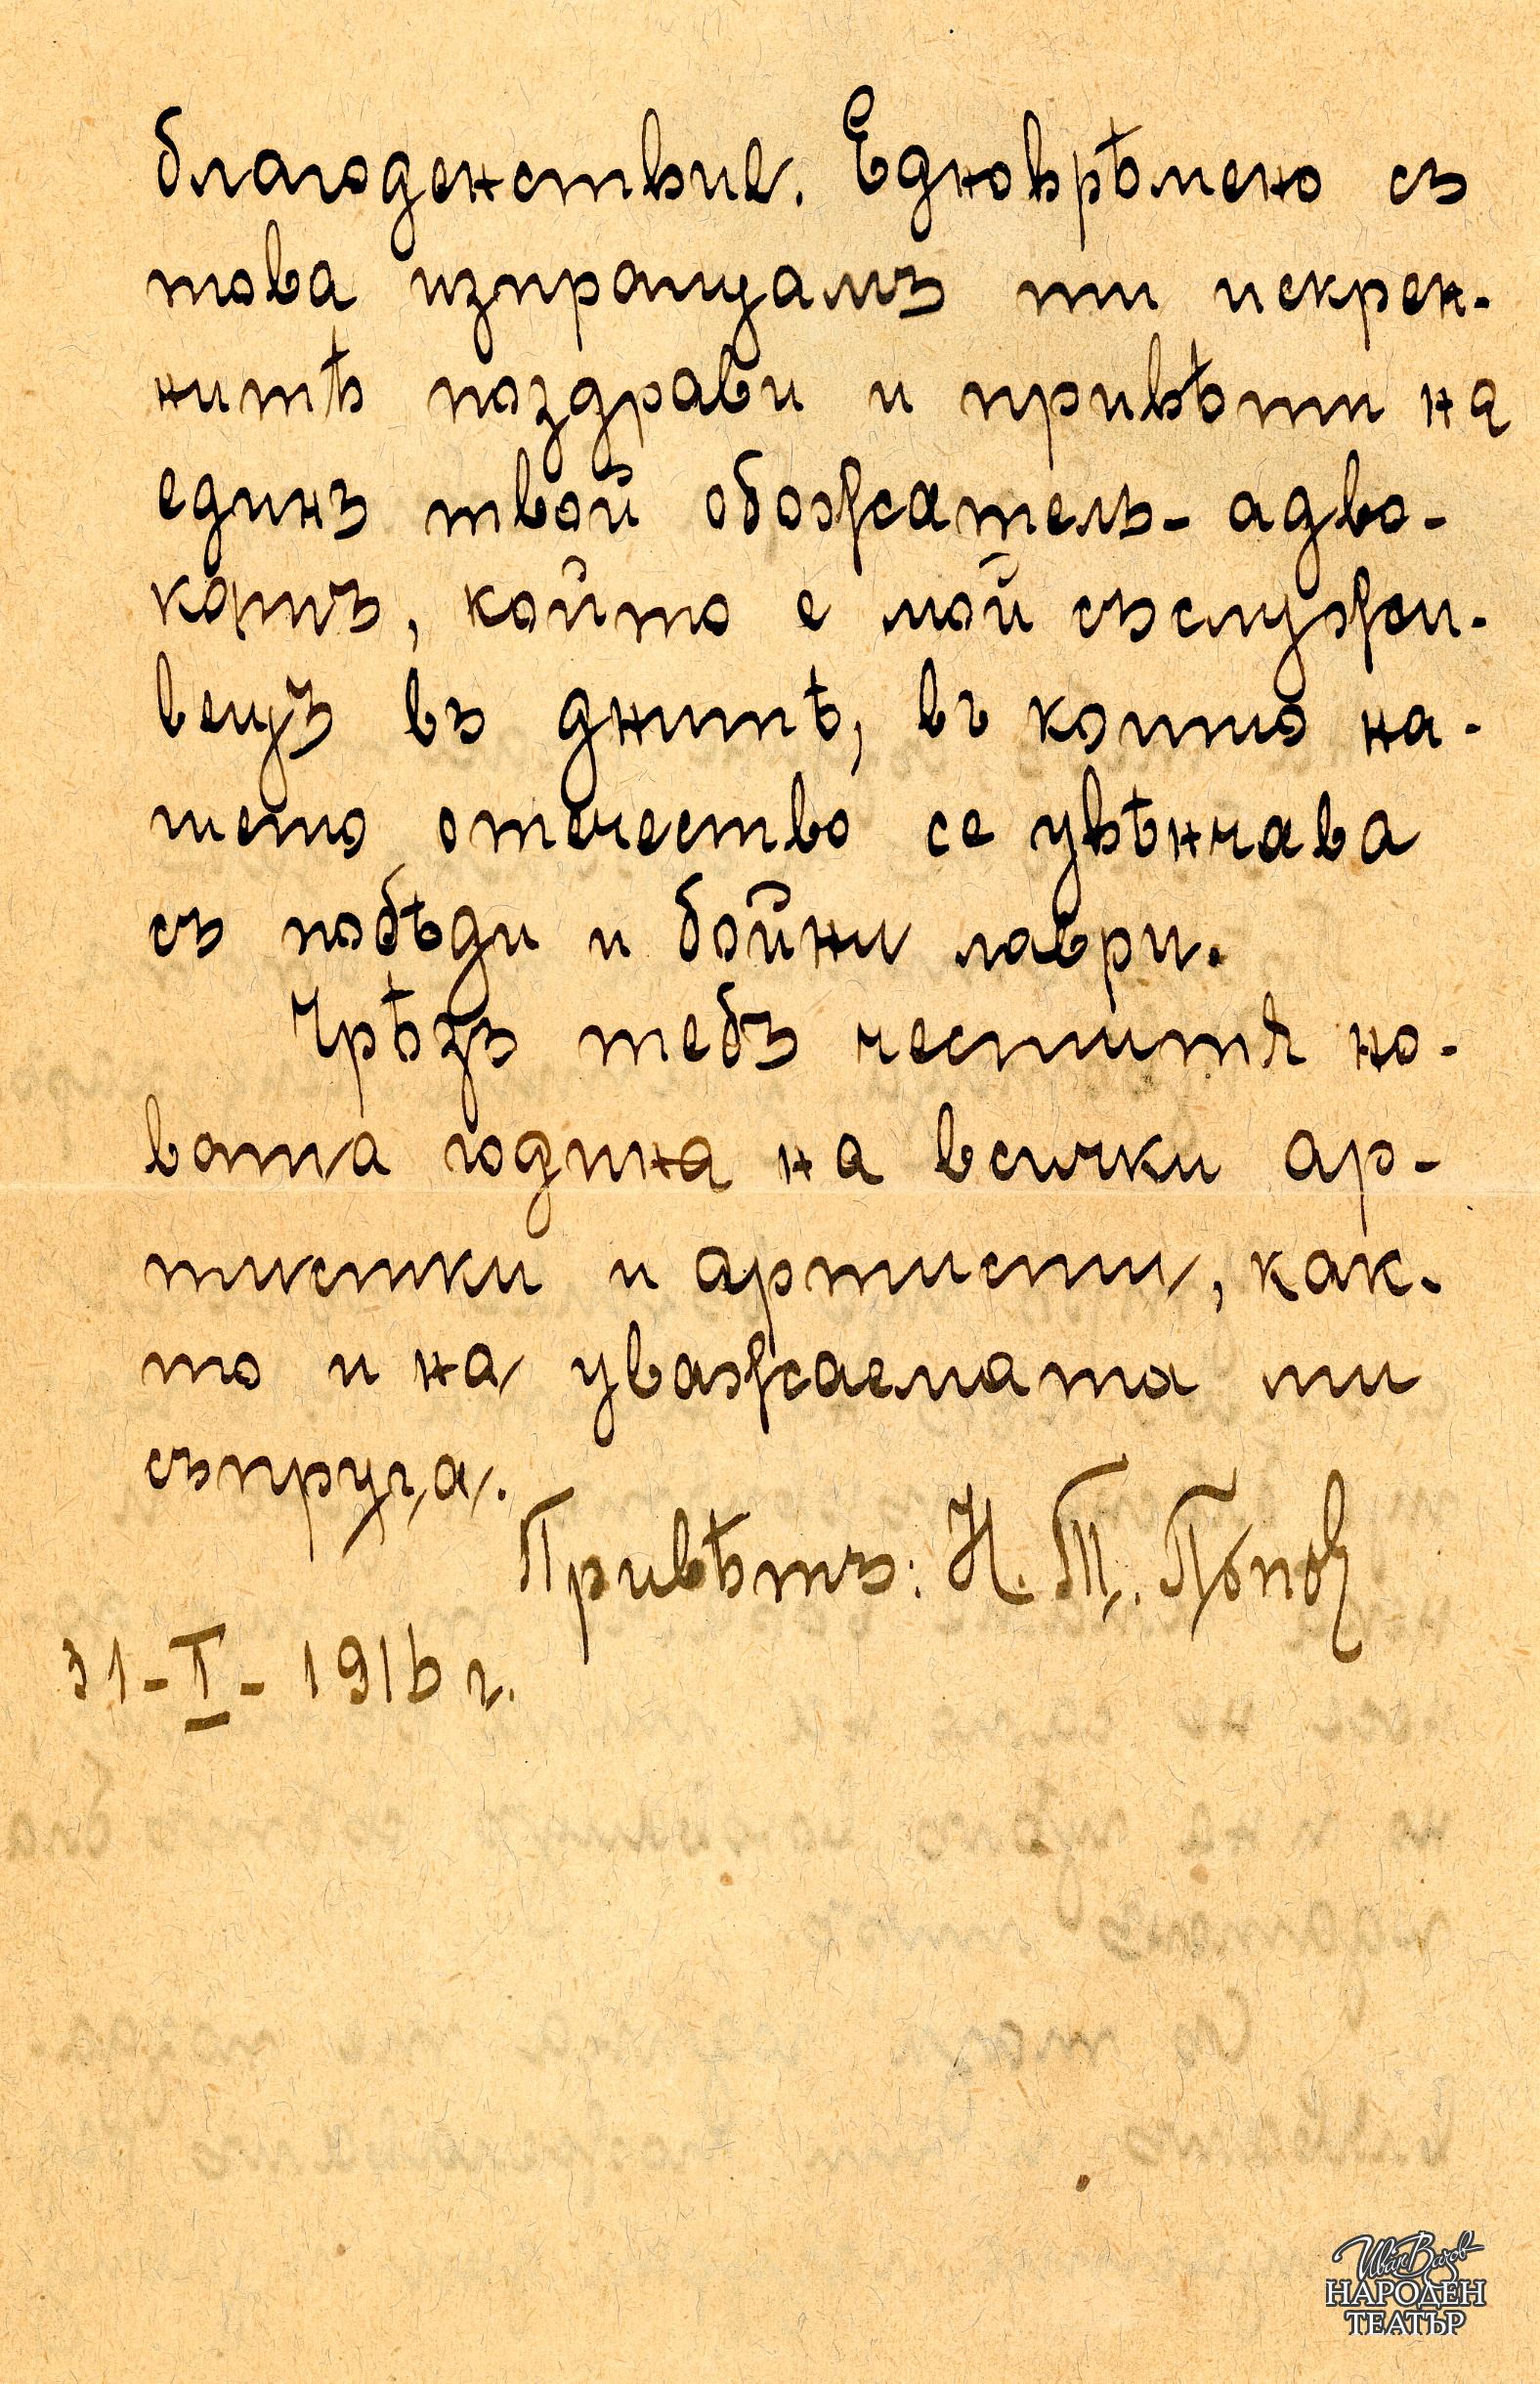 благоденствие. Едноврѣмено съ
това изпращамъ ти искрен-
нитѣ поздрави и привѣти на
единъ твой обожатель- адво-
катъ, който е мой съслужи-
вецъ въ днитѣ, въ които на-
шето отечество се увѣнчава
съ побѣди и бойни лаври.
Чрѣзъ тебъ честитя но-
вата година на всички ар-
тистки и артисти, как-
то и на уважаемата ти
съпруга.
Привѣтъ: Н. Т. Попов
31-I-1916 г.
Иван Вазов
НАРОДЕН
ТЕАТЪР